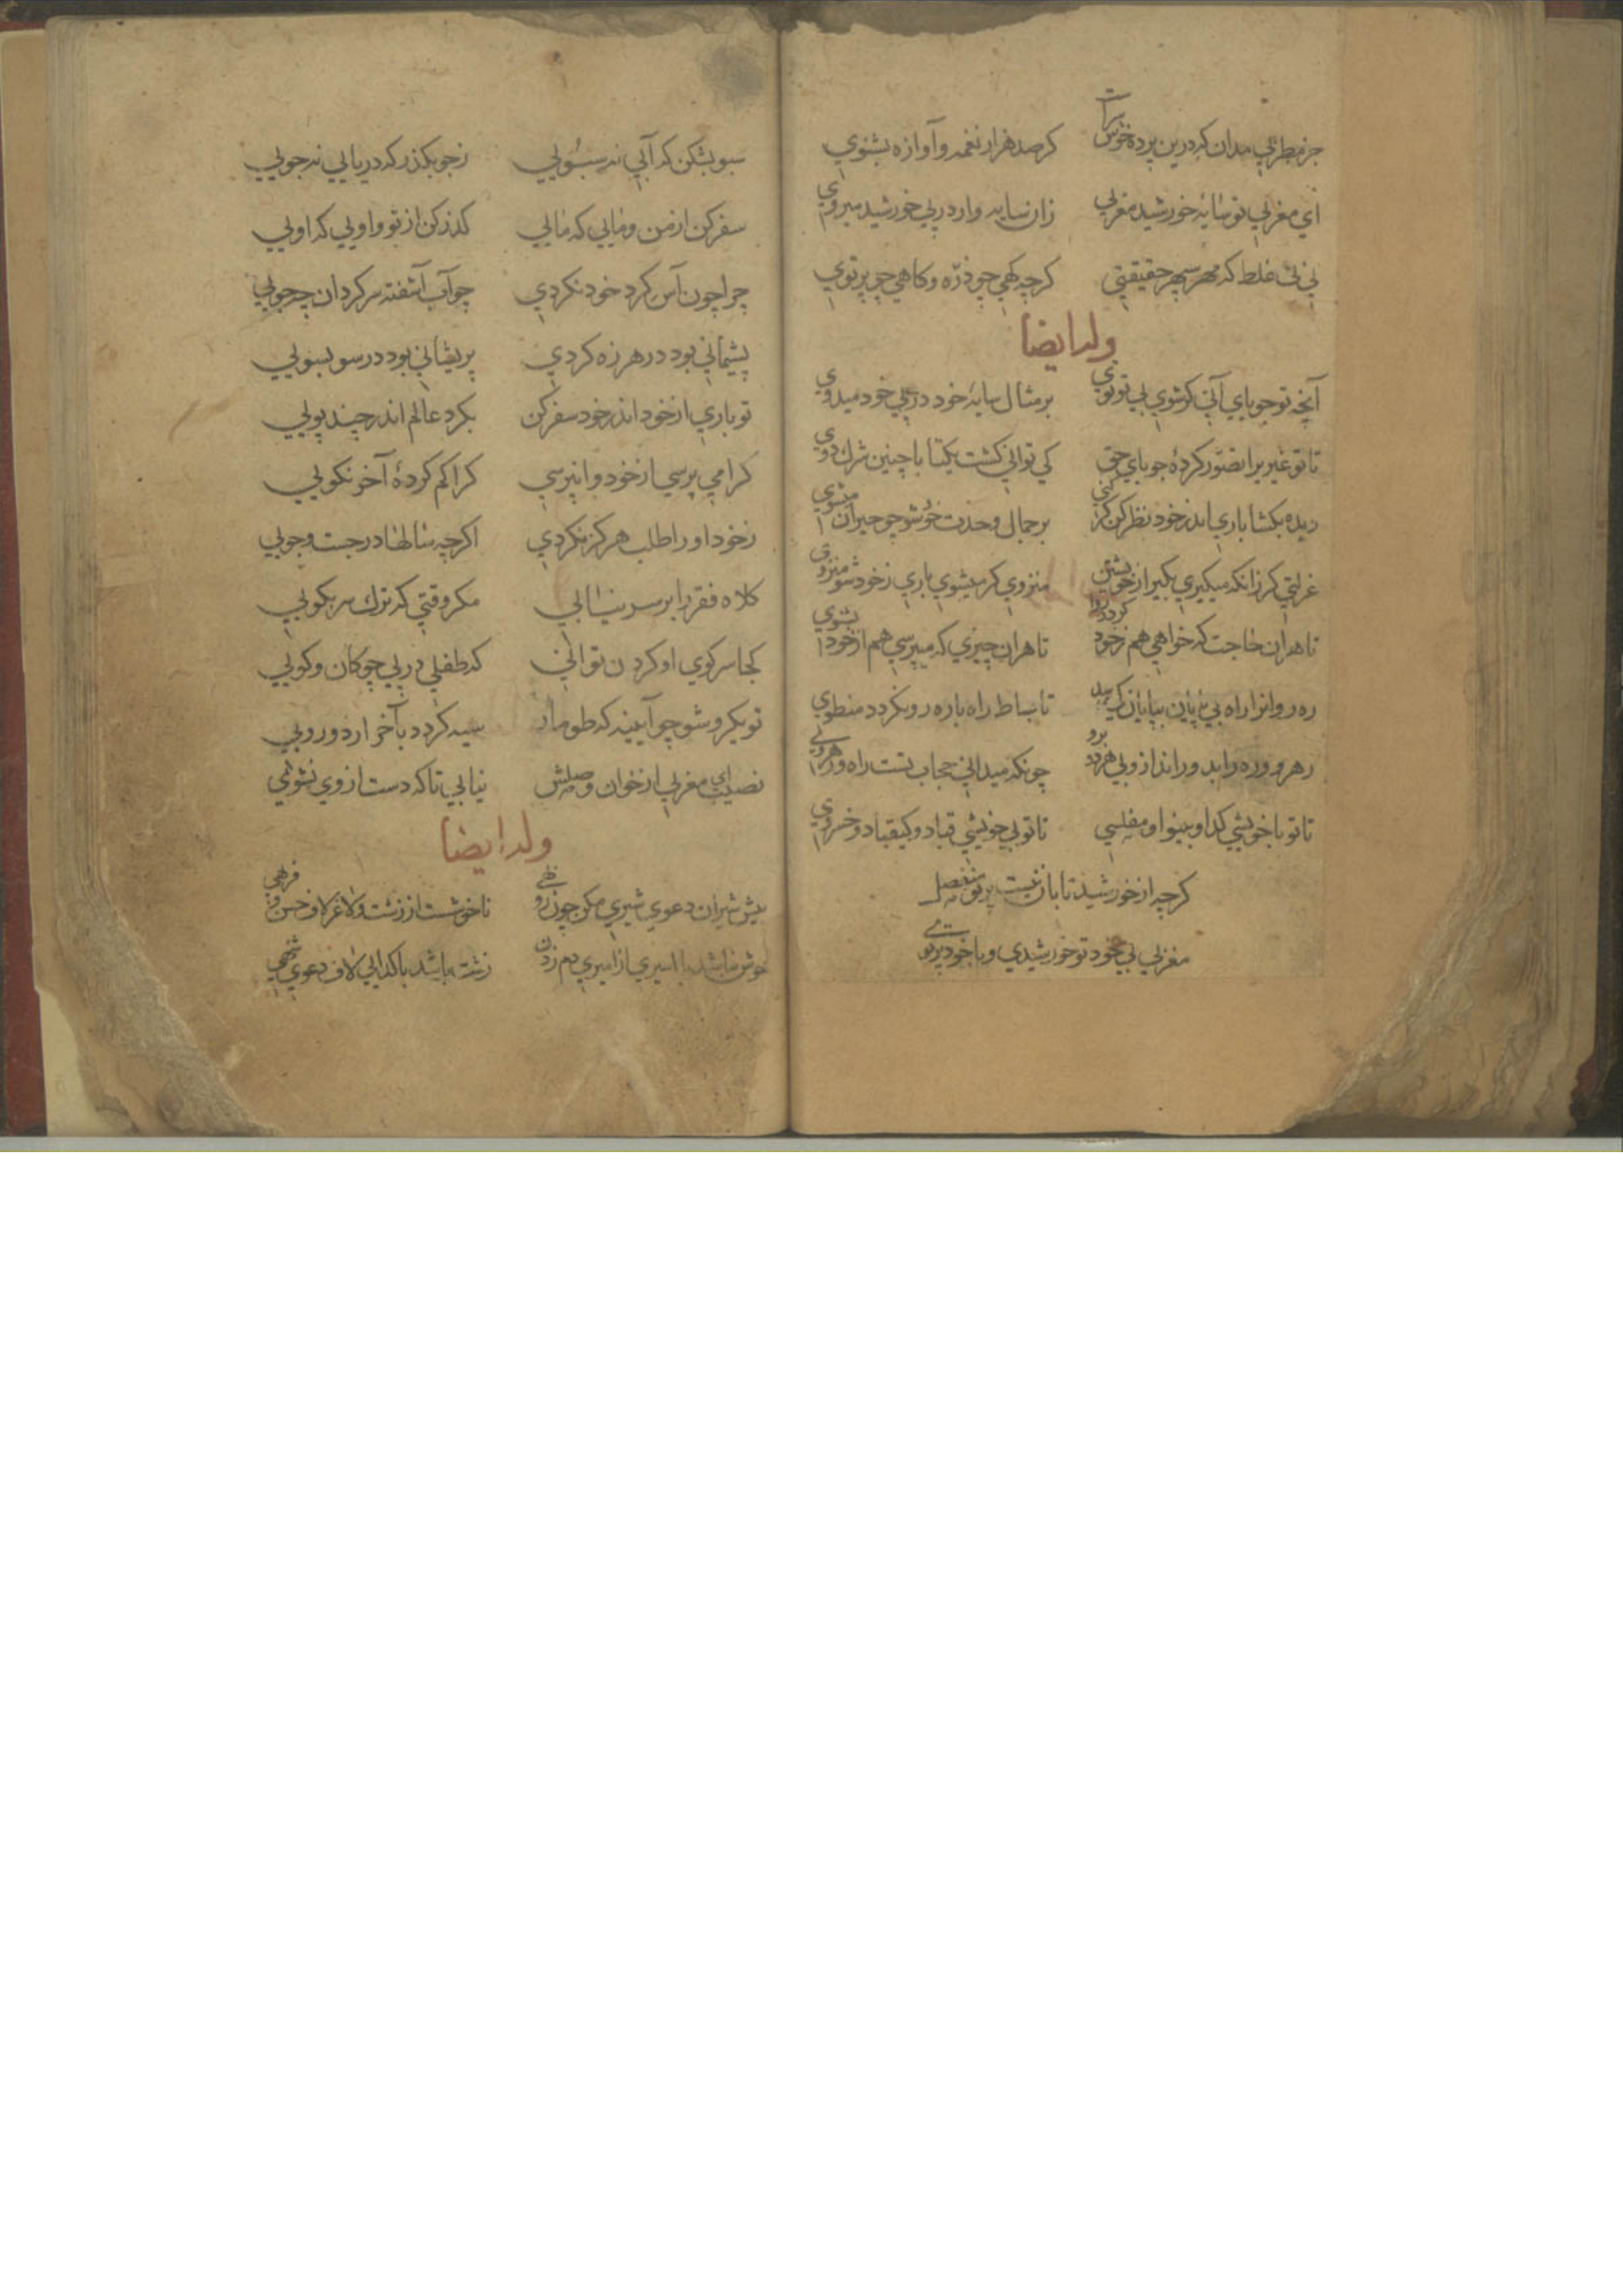 جز مطربی مدان که درین پرده خوش سراست کر صد هزار نغمه و آوازه بشنوی
ای مغربی تو سایهٔ خورشید مغربی زان سایه وار در پی خورشید میروی
نی نی غلط که مهر سپهر حقیقتی کرچه کهی چو ذرّه و کاهی چو پرتوی
وله ایضا
آنچه تو جویای آنی کر شوی بی تو توی بر مثال سایهٔ خود در پی خود میدوی
تا تو غیریرا تصوّر کردهٔ جویای حق کی توانی کشت یکتا با چنین شرك دوی
دیده بکشا باری اندر خود نظر کن کز بر جمال وحدت خوشو چو حیران میشوی
عزلتی کر زانکه میکیری بکیر از خویشتن منزوی کر میشوی باری زخود شو منزوی
تا هر آن حاجت که خواهی هم زخود کردد روا تا هر آن چیزی که میپرسی هم از خود بشنوی
ره روانرا راه بی پایان بپایان کی رسد تا بساط راه با ره رو نکردد منطوی
رهرو و ره را بدور انداز و بی هردو برو چونکه میدانی حجاب تست راه و رهروی
تا تو با خویشی کدا و بینوا و مفلسی تا تو بی خویشی قباد و کیقباد و خسروی
کرچه از خورشید تابان نیست پرتو منفصل
مغربی بی خود تو خورشیدی و با خود پرتوی
سبو بشکن که آبی نه سبویی زجو بکذر که دریایی نه جویی
سفر کن از من و مایی که مایی کذر کن از تو و اویی که اویی
چرا چون آس کرد خود نکردی چو آب آشفته سرکردان چه جویی
پشیمانی بود در هرزه کردی پریشانی بود در سو بسویی
تو باری از خود اندر خود سفر کن بکرد عالم اندر چند پویی
کرا می پرسی از خود وانپرسی کرا کم کردهٔ آخر نکویی
زخود او را طلب هرکز نکردی اکرچه سالها در جست و جویی
کلاه فقر را بر سر نیابی مکر وقتی که ترك سر بکویی
کجا سر کوی او کردن توانی که طفلی در پی چوکان و کویی
تو یکرو شو چو آیینه که طومار سیه کردد بآخر از دورویی
نصیب ای مغربی از خوان وصلش نیابی تا که دست از وی نشویی
وله ایضا
پیش شیران دعوی شیری مکن چون روبهی ناخوشست از زشت و لاغر لاف حسن و فربهی
خوش نباشد با اسیری از امیری دم زدن زشت باشد با کدایی لاف دعوی شهی